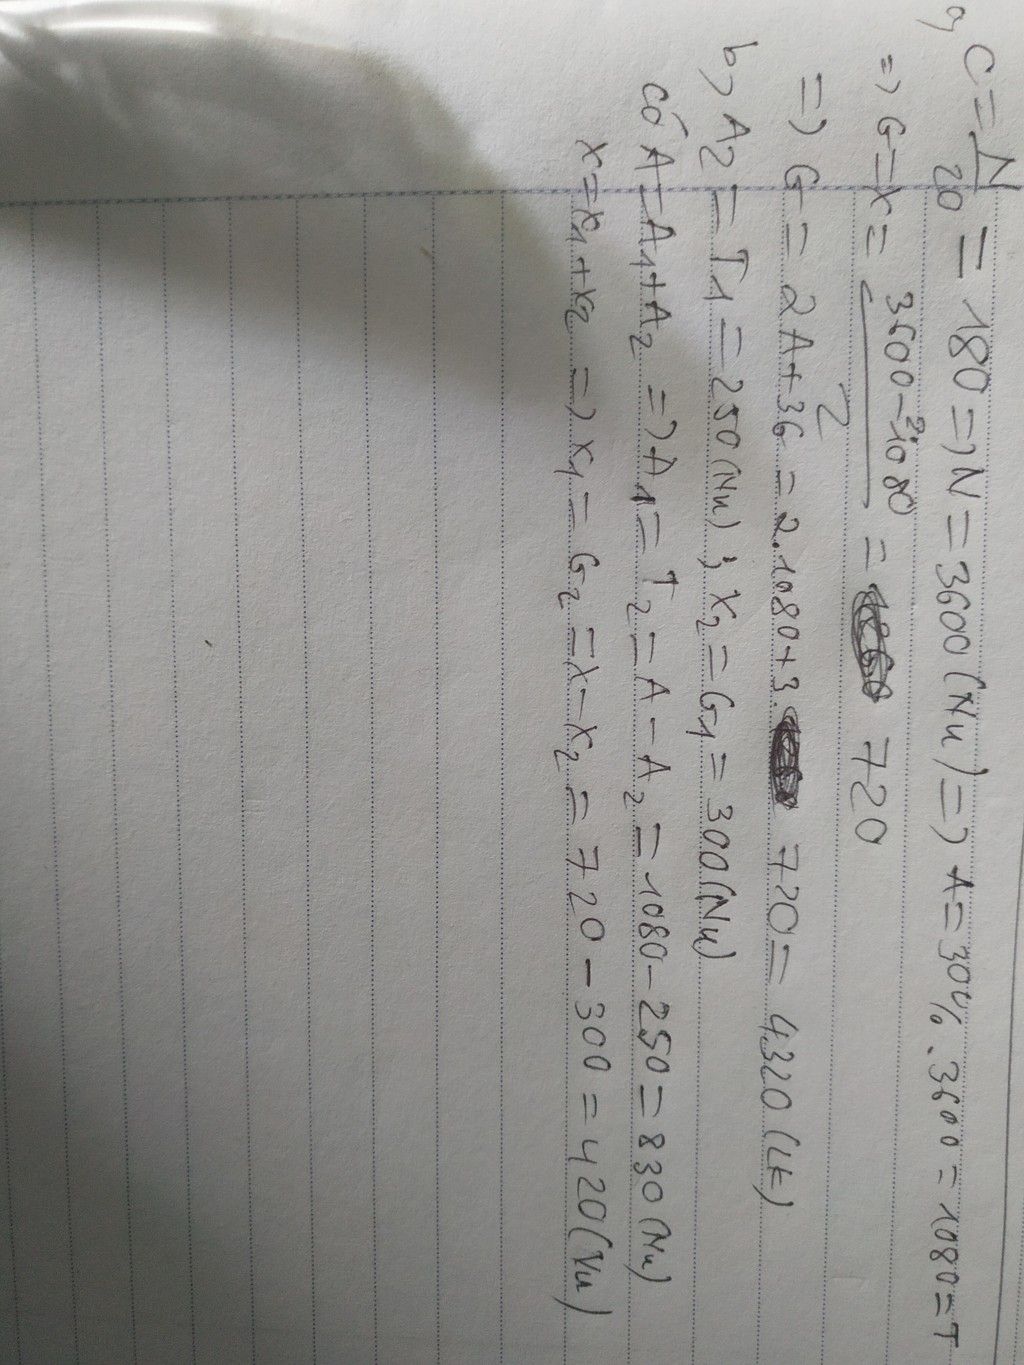 a, C = N/20 = 180 => N = 3600 (Nu) => A = 30% . 3600 = 1080 = T
=> G = X = (3600 - 2.1080)/2 = 720
=> G = 2A + 3G = 2.1080 + 3. 720 = 4320 (LK)
b, A₂ = T₁ = 250 (Nu) ; X₂ = G₁ = 300 (Nu)
có A = A₁ + A₂ => A₁ = T₂ = A - A₂ = 1080 - 250 = 830 (Nu)
X = X₁ + X₂ => X₁ = G₂ = X - X₂ = 720 - 300 = 420 (Nu)